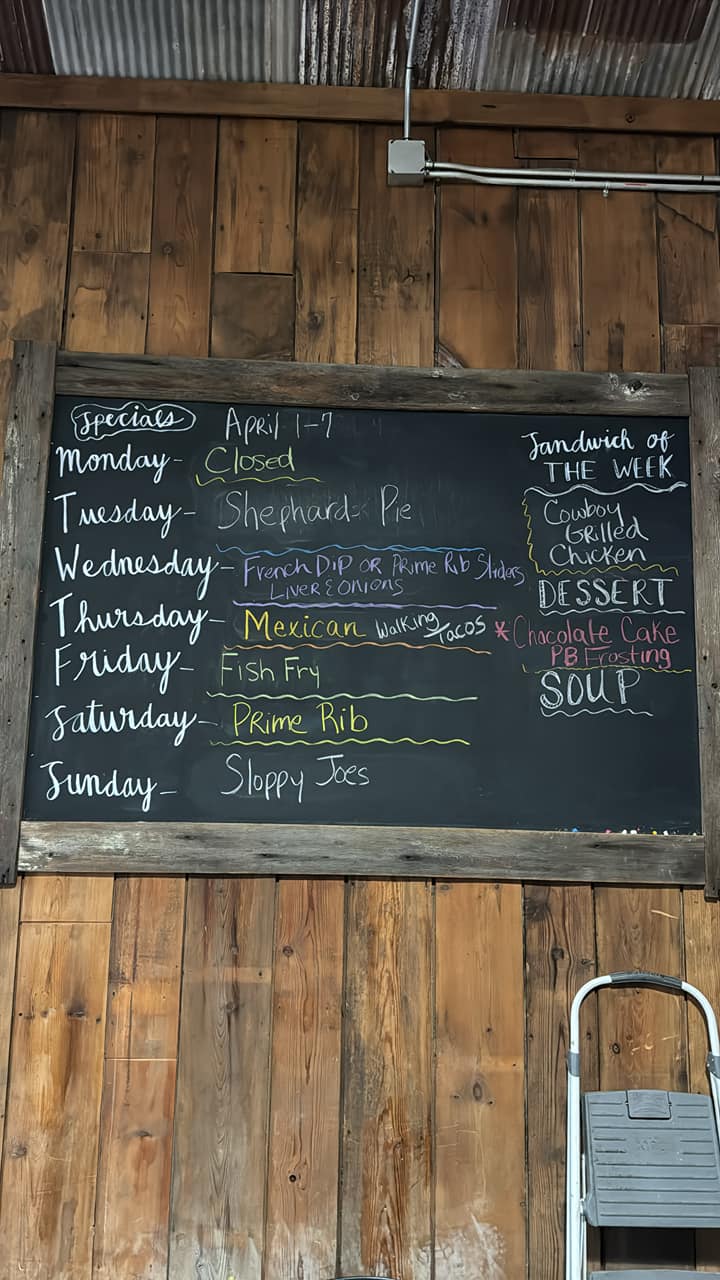 Specials April 1-7
Monday- Closed
Tuesday- Shephards Pie
Wednesday- French Dip OR Prime Rib Sliders
Liver & Onions
Thursday- Mexican Walking Tacos
Friday- Fish Fry
Saturday- Prime Rib
Sunday- Sloppy Joes
Sandwich of
THE WEEK
Cowboy
Grilled
Chicken
DESSERT
*Chocolate Cake
PB Frosting
SOUP